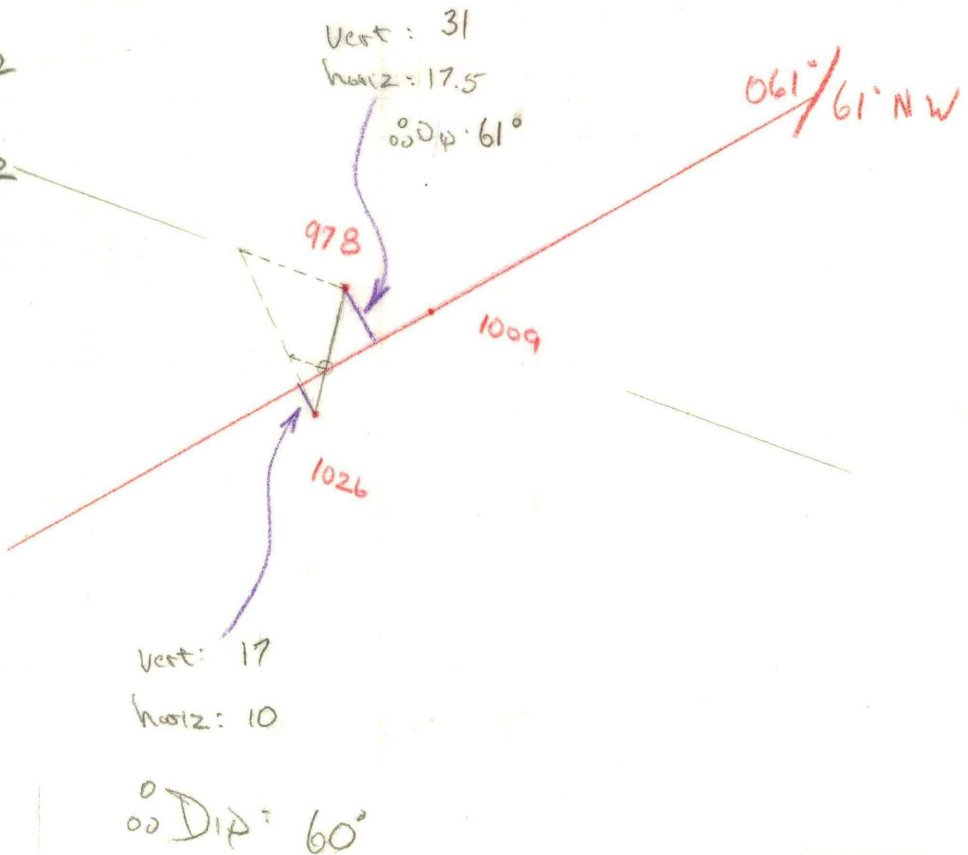 vert: 31
horiz: 17.5
∴ Dip: 61°
061°/61° NW
978
1009
1026
vert: 17
horiz: 10
∴ Dip: 60°